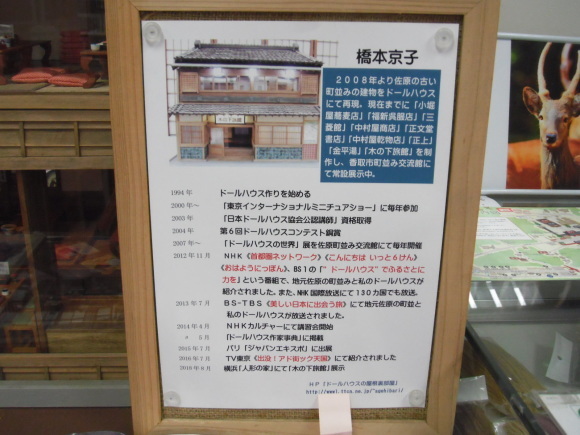 橋本京子
2008年より佐原の古い
町並みの建物をドールハウス
にて再現。現在までに「小堀
屋蕎麦店」「福新呉服店」「三
菱館」「中村屋商店」「正文堂
書店」「中村屋乾物店」「正上」
「金平湯」「木の下旅館」を制
作し、香取市町並み交流館に
て常設展示中。
木の下旅館
1994年 ドールハウス作りを始める
2000年~ 「東京インターナショナルミニチュアショー」に毎年参加
2003年 「日本ドールハウス協会公認講師」資格取得
2004年 第6回ドールハウスコンテスト銅賞
2007年~ 「ドールハウスの世界」展を佐原町並み交流館にて毎年開催
2012年11月 NHK《首都圏ネットワーク》《こんにちは いっと6けん》
《おはようにっぽん》、BS1の「"ドールハウス"でふるさとに
力を」という番組で、地元佐原の町並みと私のドールハウスが
紹介されました。また、NHK国際放送にて130カ国でも放送。
2013年7月 BS-TBS《美しい日本に出会う旅》にて地元佐原の町並と
私のドールハウスが放送されました。
2014年4月 NHKカルチャーにて講習会開始
〃 5月 「ドールハウス作家事典」に掲載
2015年7月 パリ「ジャパンエキスポ」に出展
2016年7月 TV東京《出没!アド街ック天国》にて紹介されました
2016年9月 横浜「人形の家」にて「木の下旅館」展示
HP「ドールハウスの屋根裏部屋」